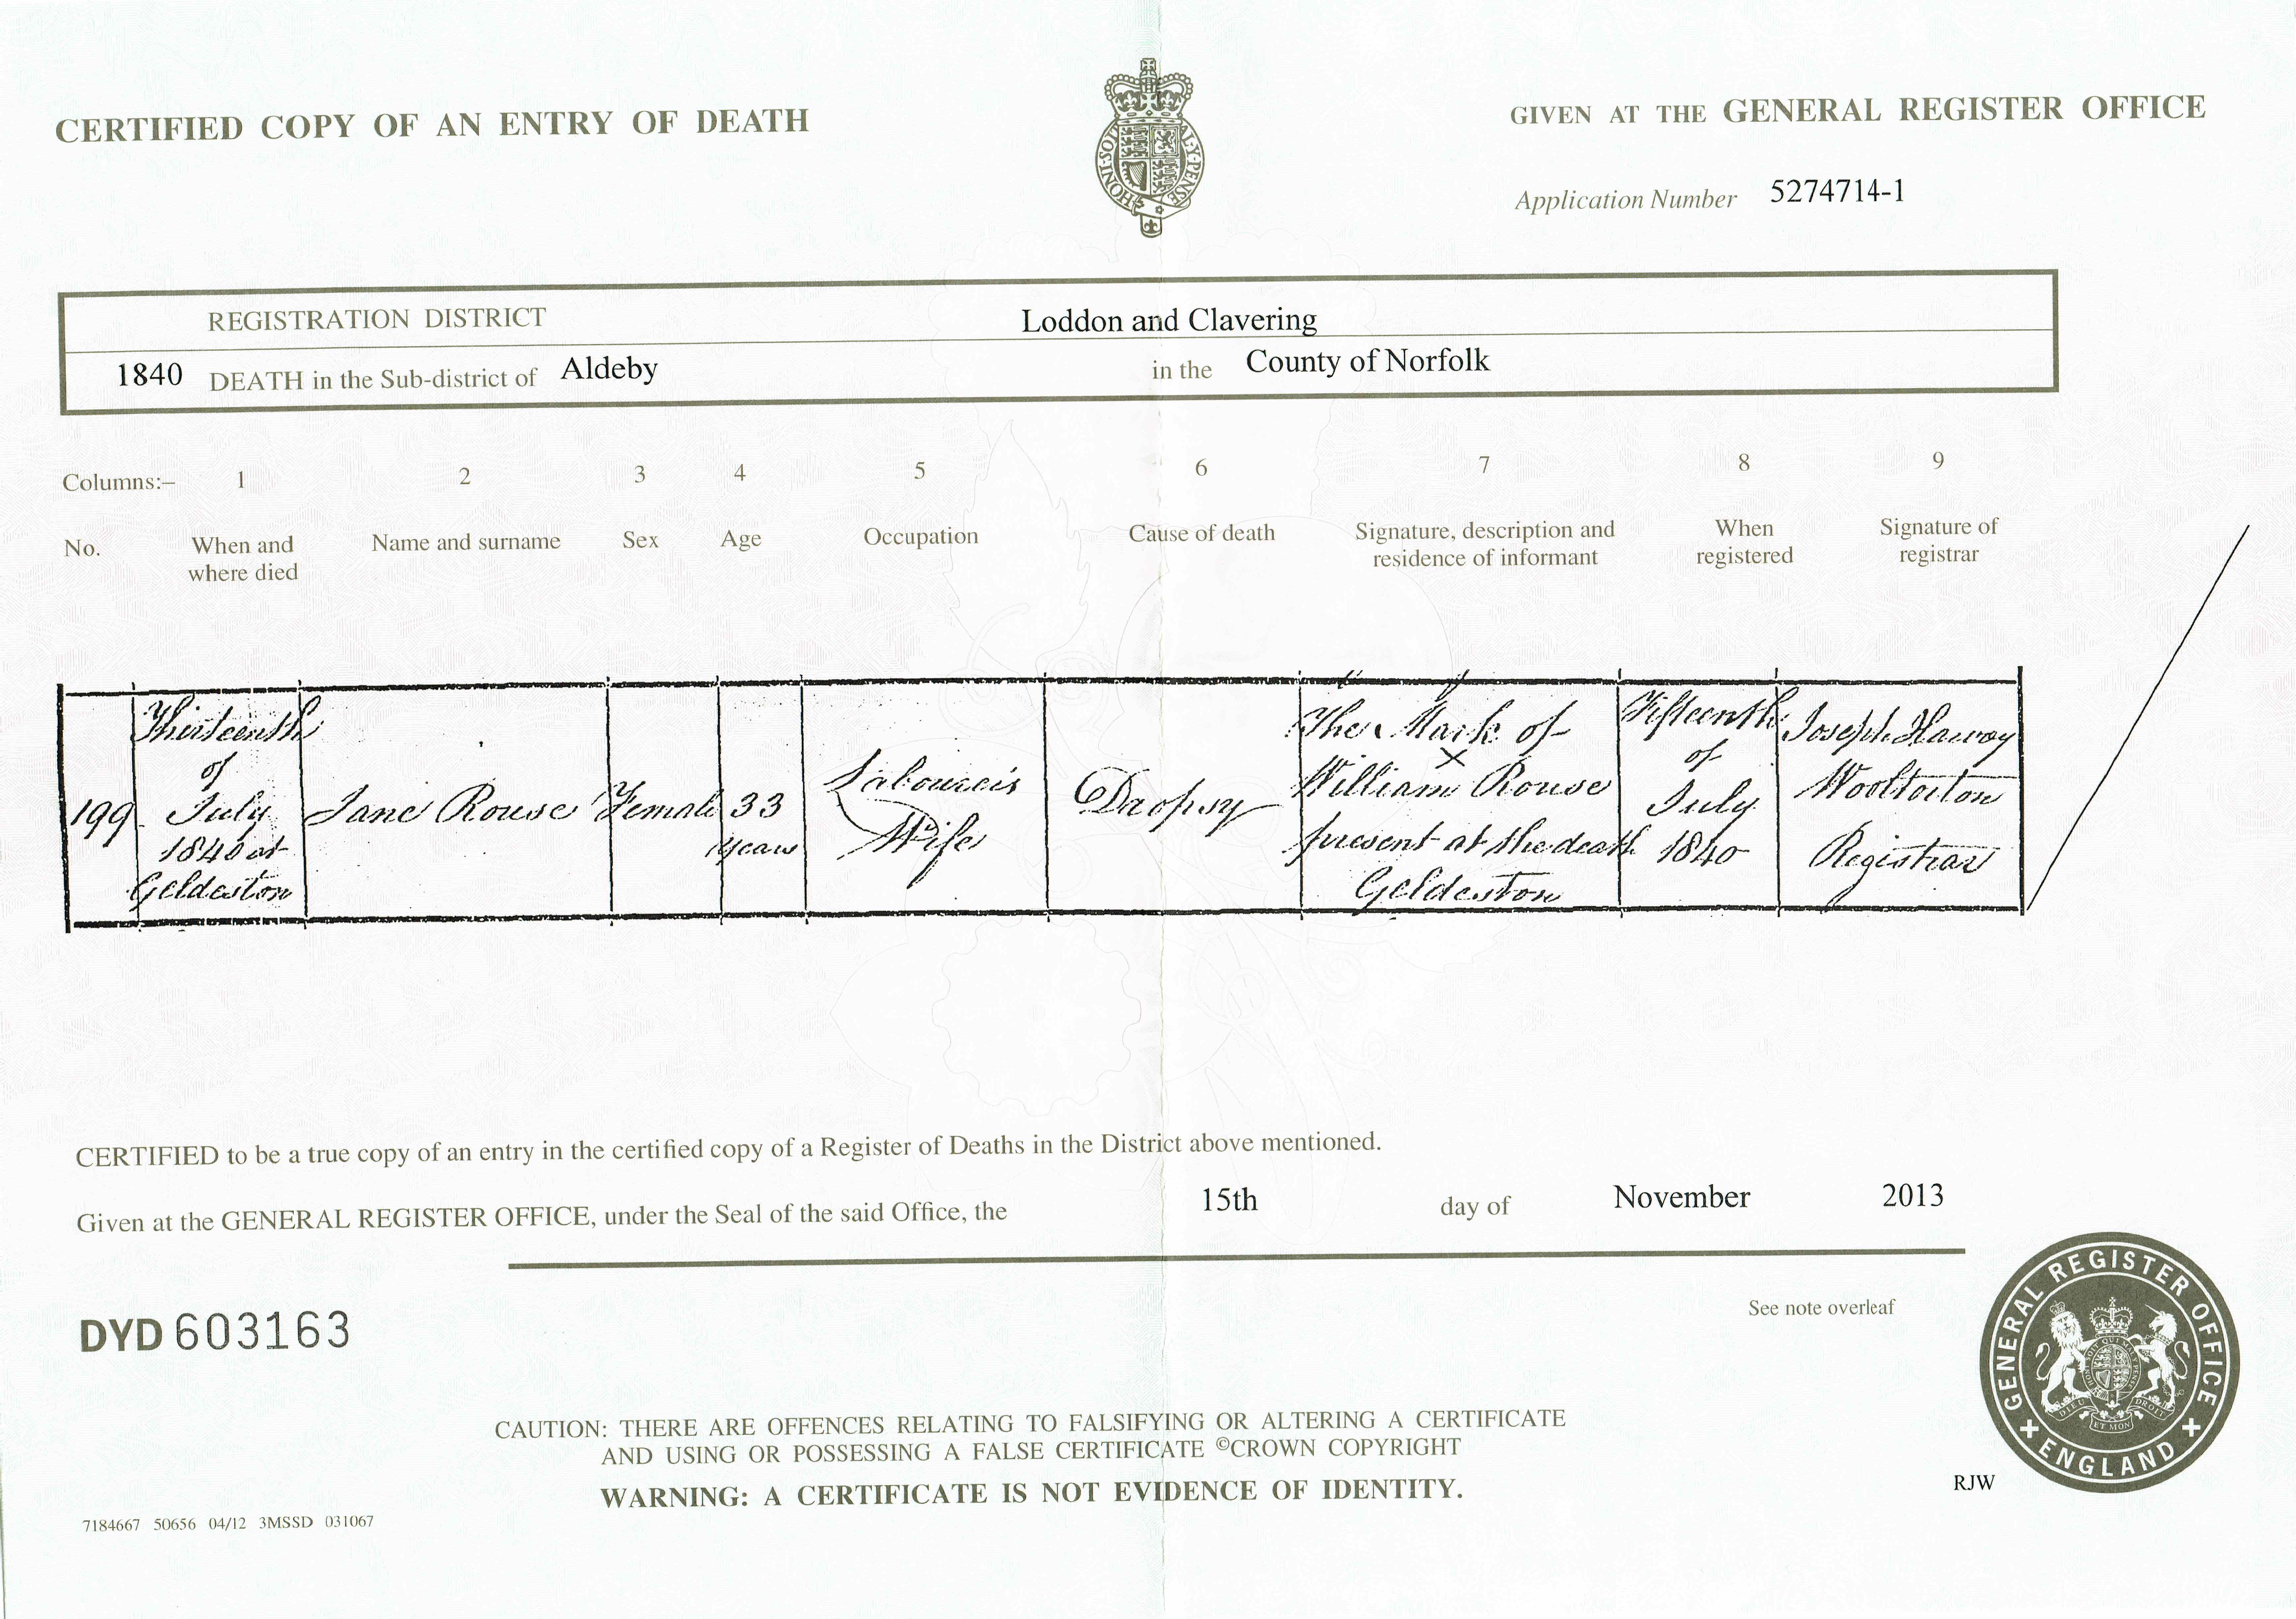 CERTIFIED COPY OF AN ENTRY OF DEATH
HONI·SOIT
AL·Y·PENSE
GIVEN AT THE GENERAL REGISTER OFFICE
Application Number 5274714-1
REGISTRATION DISTRICT Loddon and Clavering
1840 DEATH in the Sub-district of Aldeby in the County of Norfolk
Columns:– 1 2 3 4 5 6 7 8 9
No.
When and
where died
Name and surname
Sex
Age
Occupation
Cause of death
Signature, description and
residence of informant
When
registered
Signature of
registrar
199
Thirteenth
of
July
1840 at
Geldeston
Jane Rouse
Female
33
years
Labourer's
Wife
Dropsy
The Mark of
X
William Rouse
present at the death
Geldeston
Fifteenth
of
July
1840
Joseph Harvey
Wooltorton
Registrar
CERTIFIED to be a true copy of an entry in the certified copy of a Register of Deaths in the District above mentioned.
Given at the GENERAL REGISTER OFFICE, under the Seal of the said Office, the 15th day of November 2013
DYD 603163
See note overleaf
GENERAL REGISTER OFFICE
ENGLAND
DIEU ET MON DROIT
CAUTION: THERE ARE OFFENCES RELATING TO FALSIFYING OR ALTERING A CERTIFICATE
AND USING OR POSSESSING A FALSE CERTIFICATE ©CROWN COPYRIGHT
WARNING: A CERTIFICATE IS NOT EVIDENCE OF IDENTITY.
RJW
7184667 50656 04/12 3MSSD 031067